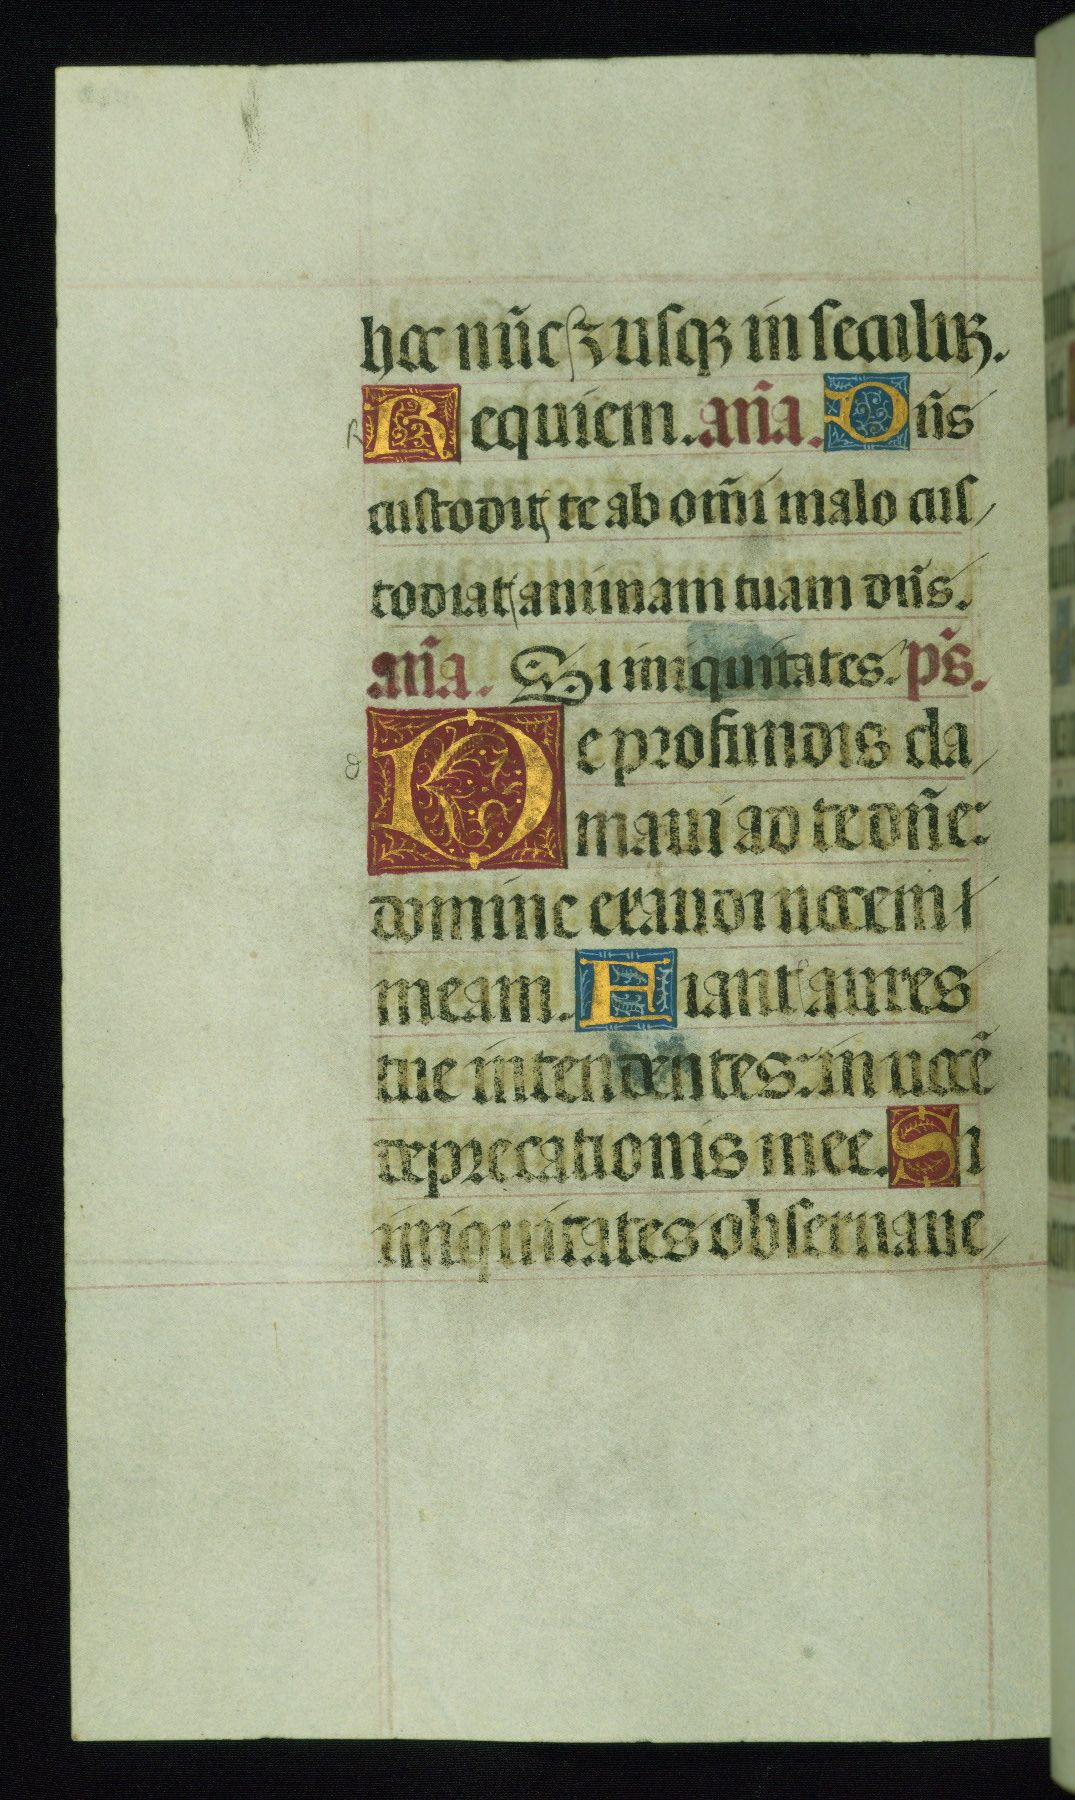 hoc nūc ⁊ usqꝫ in seculuꝝ.
Requiem. an̄a. Dn̄s
custodit te ab om̄i malo cus
todiat animam tuam dn̄s.
an̄a. Si iniquitates. ps̄.
De profundis cla
maui ad te dn̄e:
domine exaudi uocem
meam. Fiant aures
tue intendentes: in uocē
deprecationis mee. Si
iniquitates obseruaue